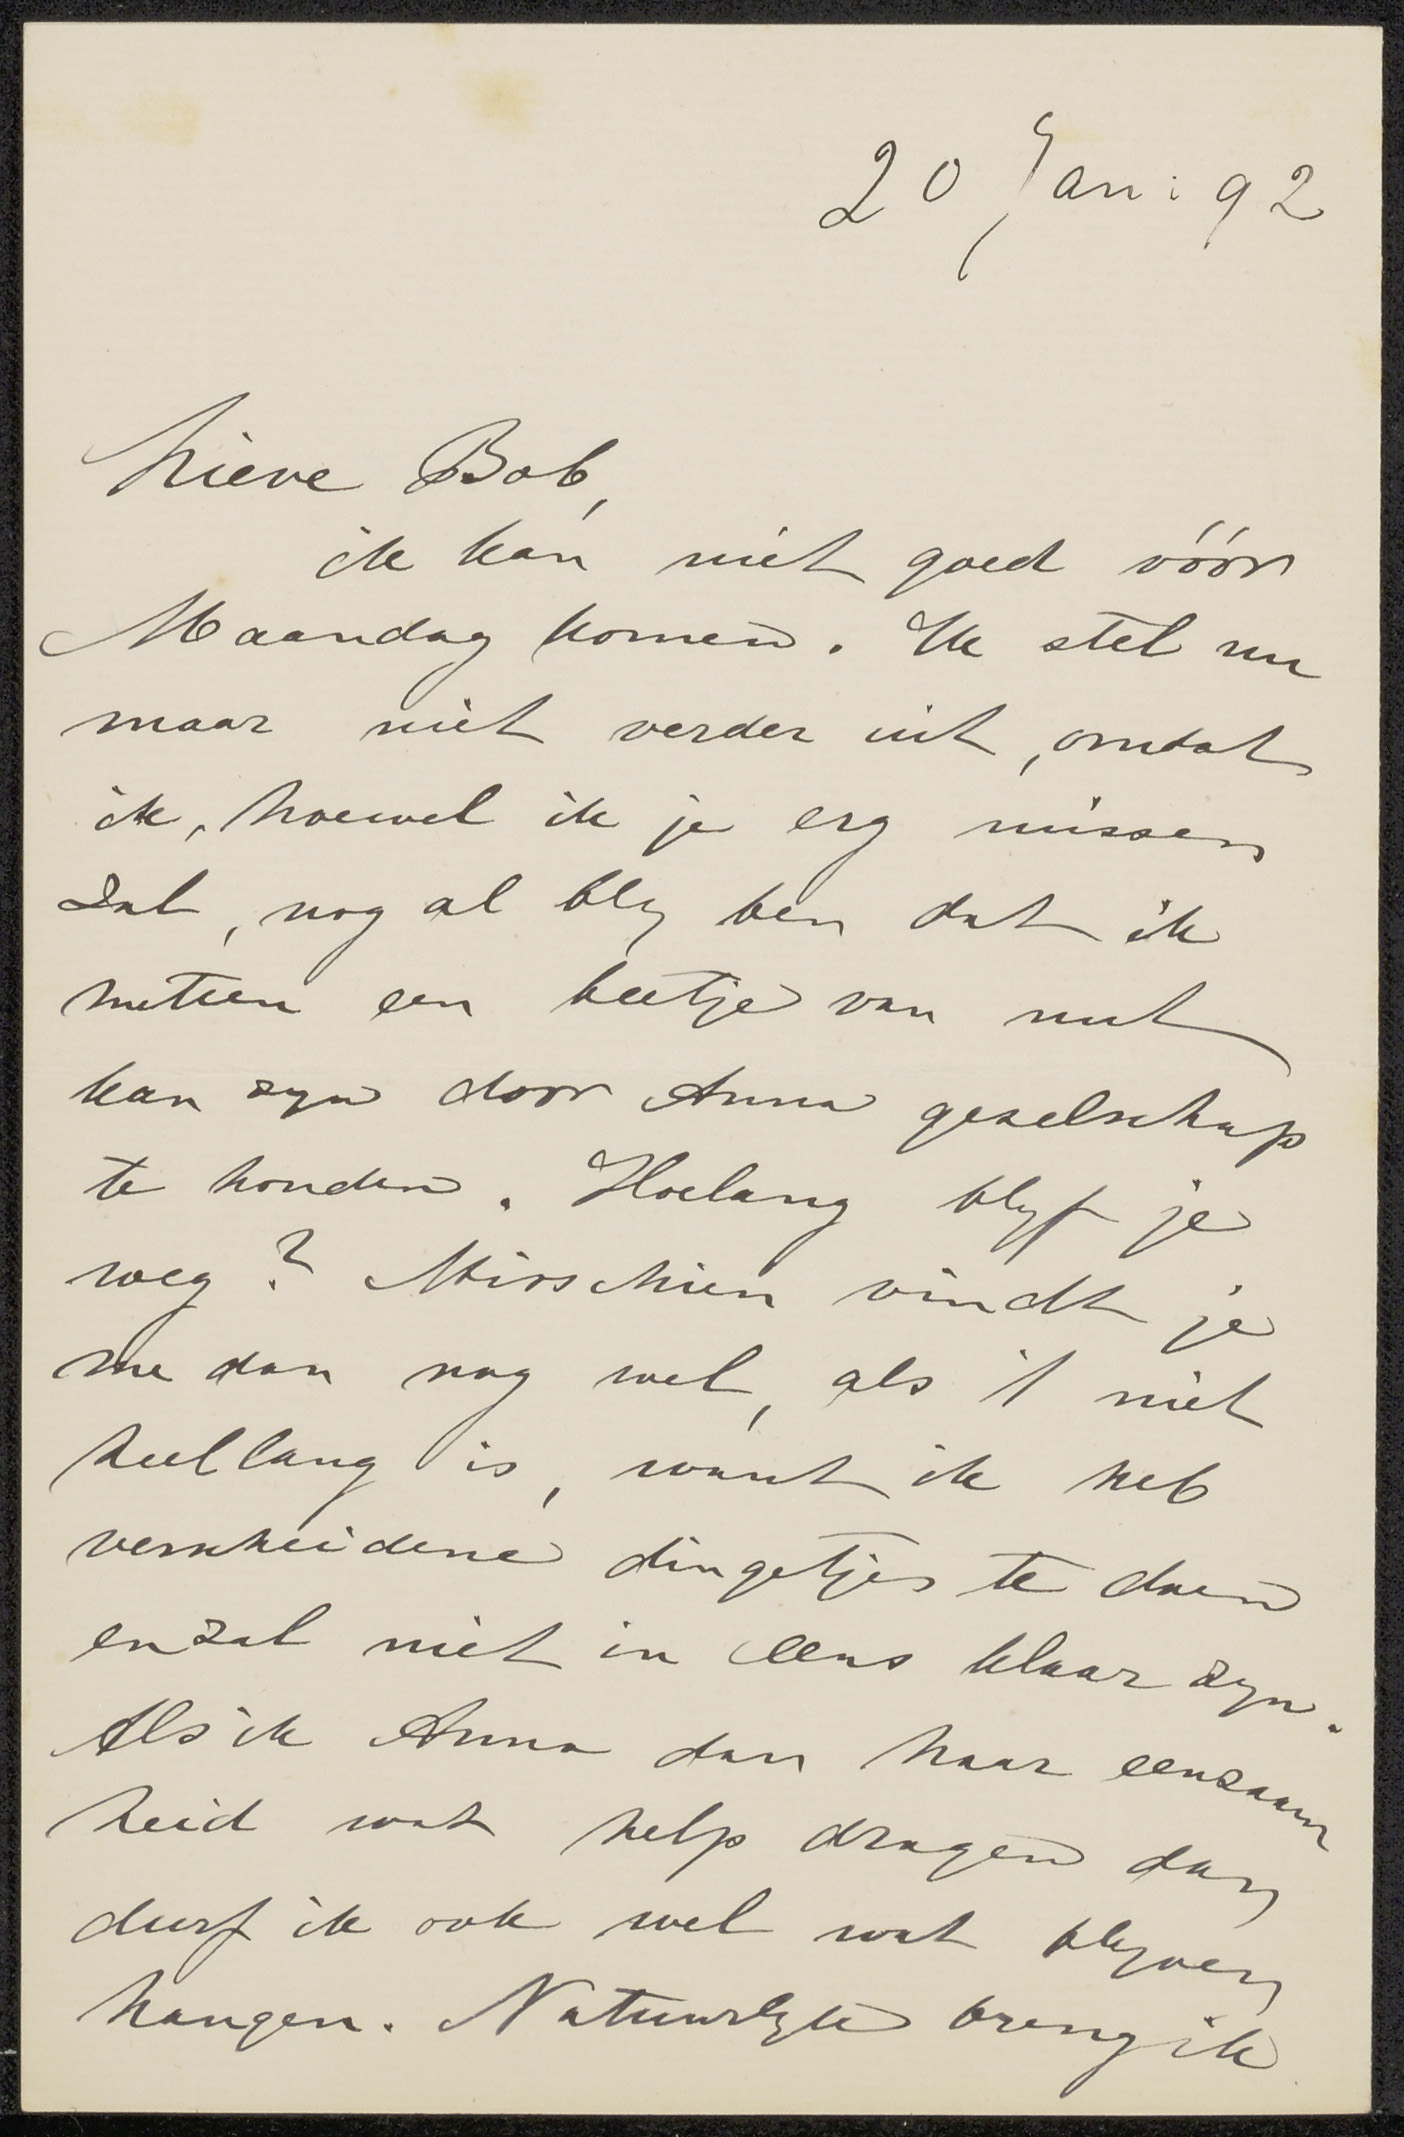 20 Jan: 92
Lieve Bob,
ik kan niet goed vóór
Maandag komen. Ik stel nu
maar niet verder uit, omdat
ik, hoewel ik je erg missen
zal, nog al bly ben dat ik
meteen een beetje van nut
kan zyn door Anna gezelschap
te houden. Hoelang blyf je
weg? Misschien vindt je
me dan nog wel, als 't niet
heel lang is, want ik heb
verscheidene dingetjes te doen
en zal niet in eens klaar zyn.
Als ik Anna dan haar eenzaam
heid wat help dragen dan
durf ik ook wel wat blyven
hangen. Natuurlyk breng ik